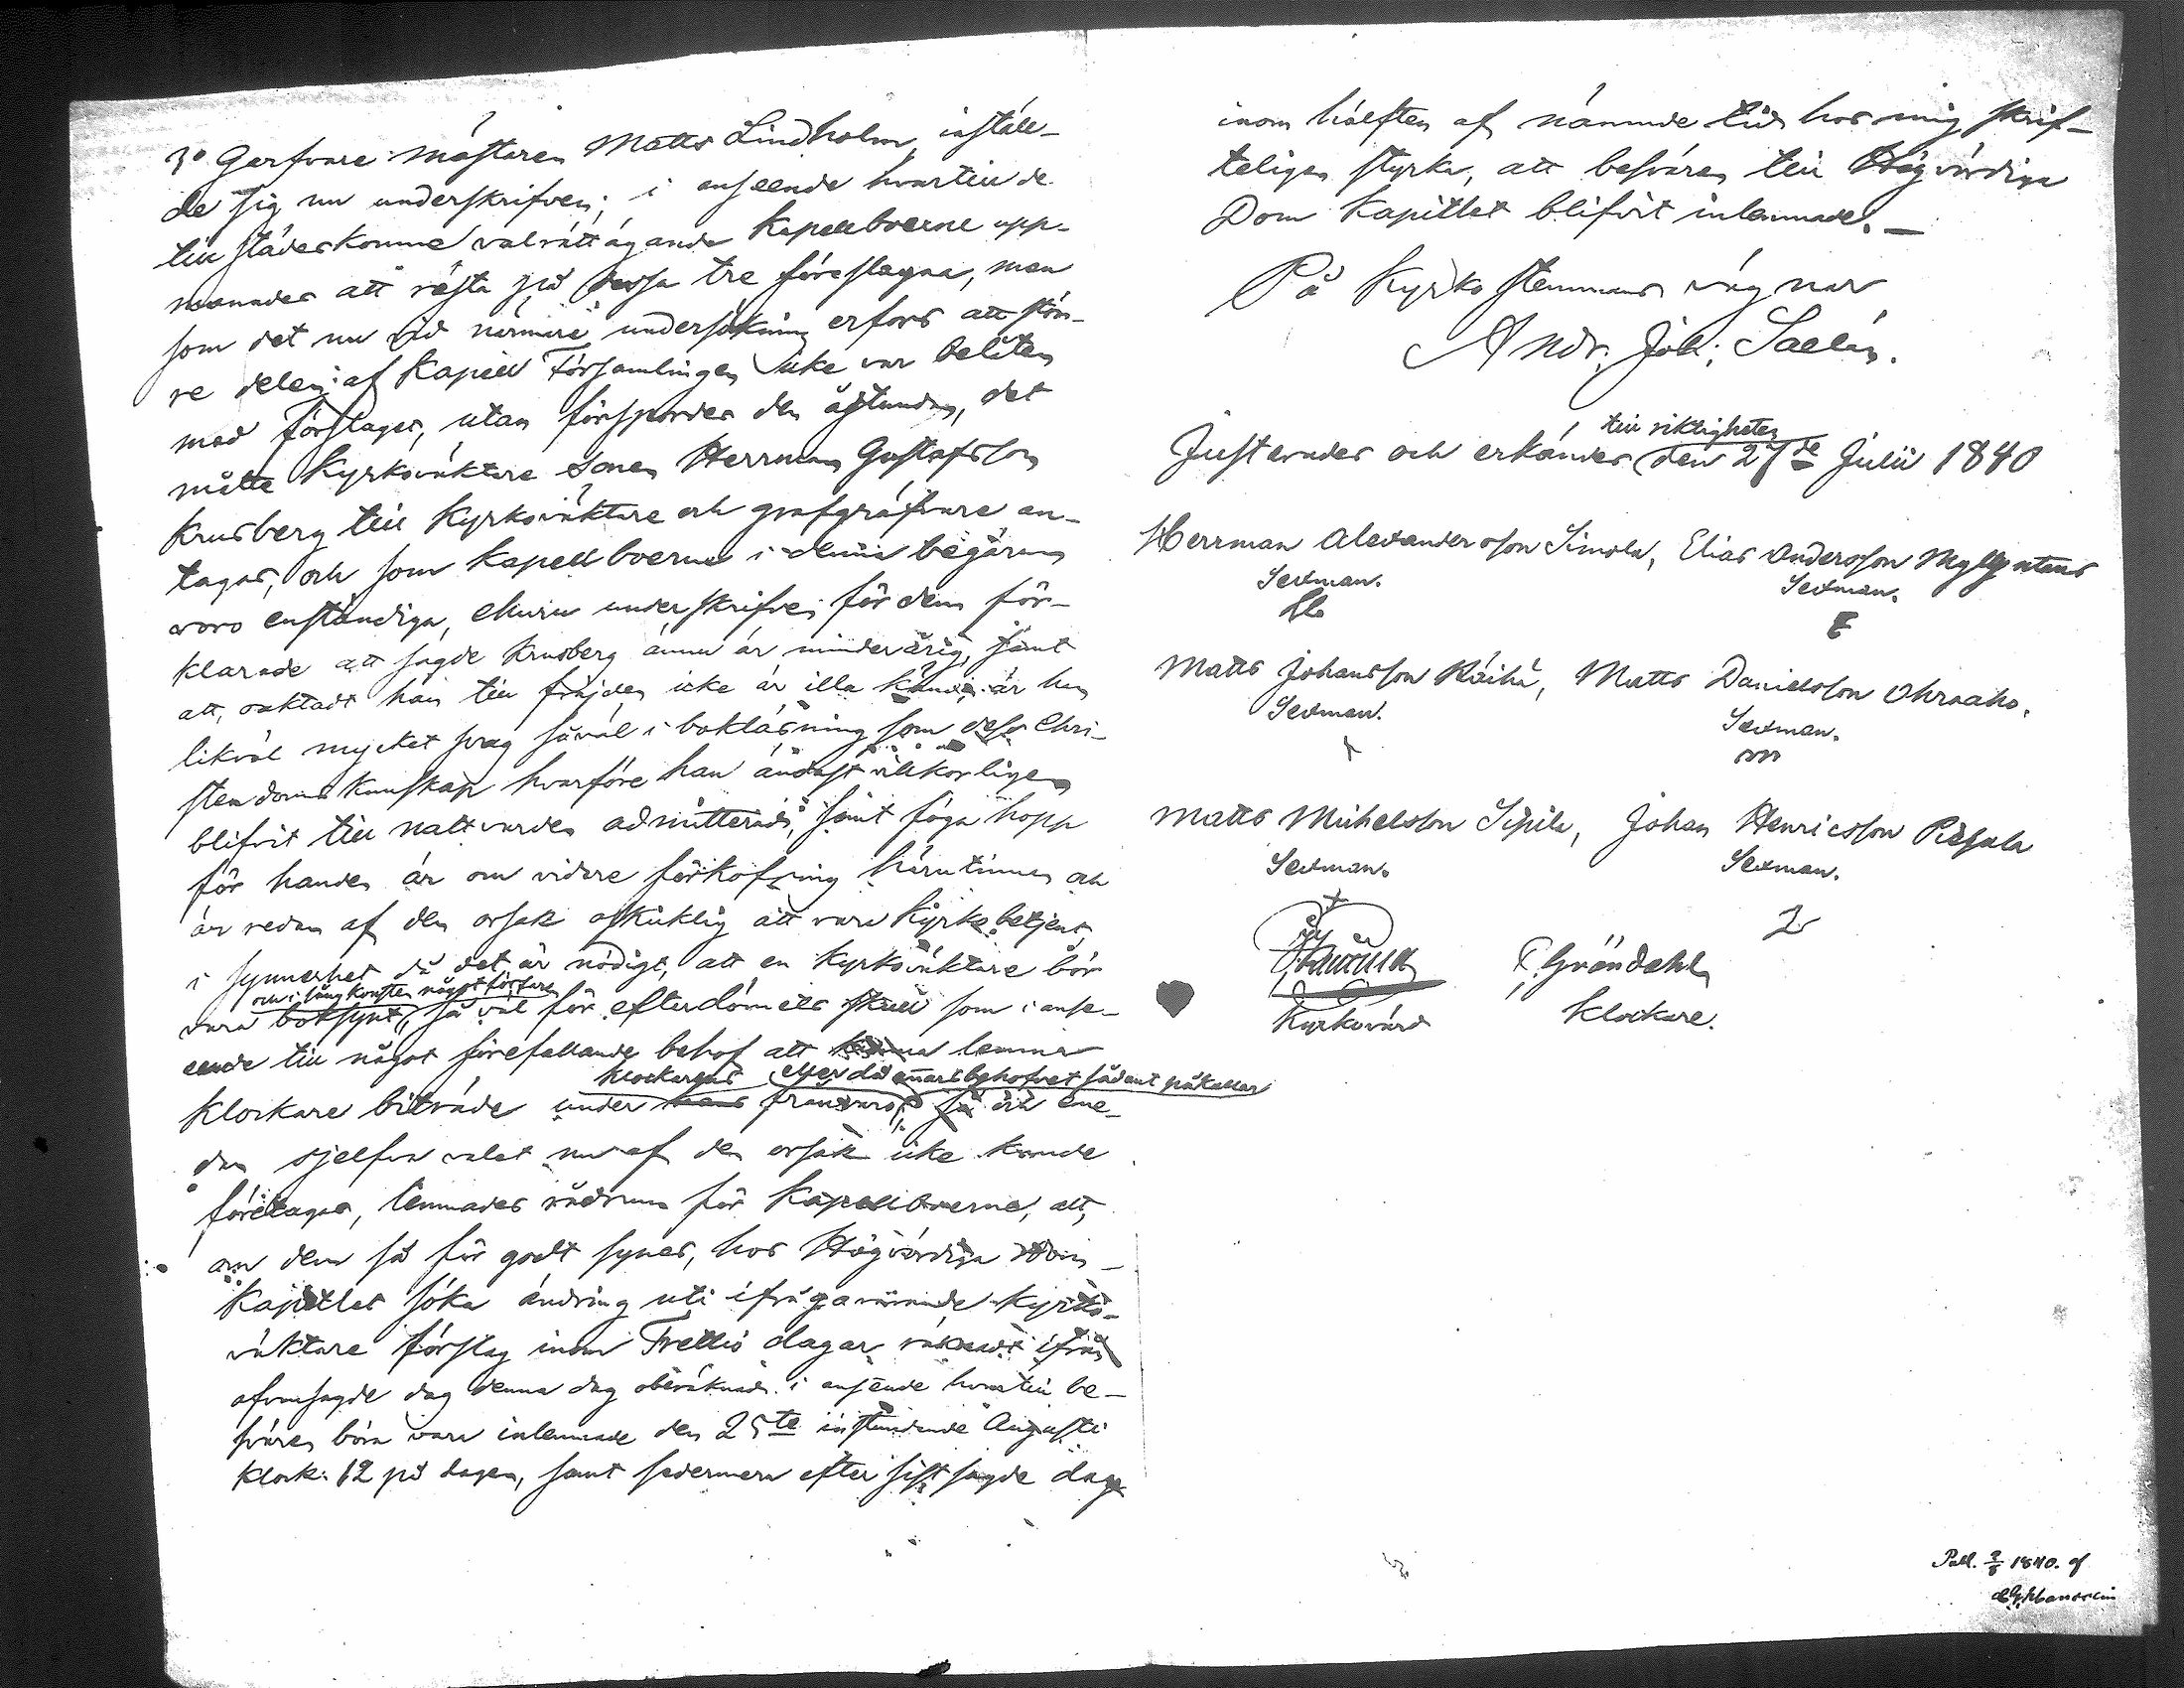 3º Garfvare mästaren Matts Lindholm, instäl-
de sig nu underskrifven, i anseende hvartill de
till städeskomne valrättägande Kapellboerne upp-
manades att rösta på dessa tre föreslagna, men
som det nu vid närmare undersökning erfors att stör-
re delen af Kapell Församlingen icke var belåten
med förslaget, utan förspordes den åstundan, det
måtte Kyrkoväktare sonen Herrman Gustafsson
Krusberg till Kyrkoväktare och grafgräfvare an-
tagas, och som Kapellboerne i denna begäran
voro enständiga, ehuru underskrifven för dem för-
klarade att sagde Krusberg ännu är minderårig, samt
att, oaktadt han till fräjden icke är illa känd, är han
likväl mycket svag såväl i bokläsning som dess Chri-
stendoms kunskap hvarföre han ändast vilkorligen
blifvit till nattvarden admitterad, samt föga hopp
för handen är om vidare förkofring härutinnan och
är redan af den orsak oskicklig att vara Kyrko betjent,
i synnerhet då det är nödigt, att en Kyrkoväktare bör
och i sångkonsten något förfaren
vara boksynt, så väl för efterdömets skull som i anse-
ende till något förefallande behof att kunna lemna
klockarens eller då annars behofvet sådant påkallar
Klockare biträde under hans frånvaro, så och eme-
dan sjelfva valet nu af den orsak icke kunde
företagas, lemnades rådrum för Kapellboerne, att,
om dem så för godt synes, hos Högvördiga Dom-
Kapitlet söka ändring uti ifrågavarande Kyrko-
väktare förslag inom Trettio dagar räknadt ifrån
ofvansagde dag denna dag oberäknad i anseende hvartill be-
svären böra vara inlemnade den 25te instundande Augusti
Klock. 12 på dagen, samt sedermera efter sist sagde dag
inom hälften af nämnde tid hos mig skrif-
teligen styrka, att besvären till Högvördiga
Dom Kapitlet blifvit inlemnade. —
På Kyrko stemmans vägnar
Andr. Joh. Saelan.
till riktigheten
Justerades och erkändes den 27de Julii 1840
Herrman Alexandersson Simola, Elias Andersson
Sexman. Sexman.
Matts Johansson Räihä, Matts Danielsson Ohraaho.
Sexman. Sexman.
m
Matts Michelsson Sipila, Johan Henricsson
Sexman. Sexman.
Gröndahl
Kyrkovärd Klockare.
1840. af